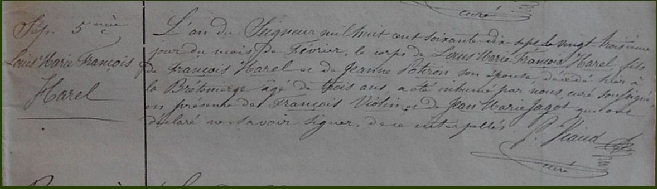 curé
Sep. 5me
Louis Marie François
Harel
L'an du Seigneur mil huit cent soixante dix sept le vingt troisième
jour du mois de Février, le corps de Louis Marie François Harel, fils
de François Harel et de Jeanne Potron son épouse, décédé hier à
la agé de trois ans, a été inhumé par nous curé soussigné
en présence de François Violin et de Jean Marie Jagot qui ont
déclaré ne savoir signer, de ce interpellés
P. Viaud
curé